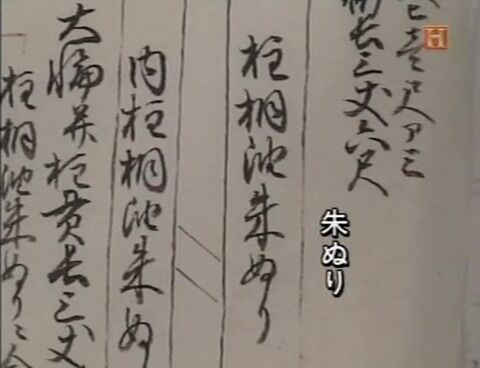 長三丈六尺
朱ぬり
柱桐油朱ぬり
内柱桐油朱ぬ
柱貫長三丈
柱桐油朱ぬり
H